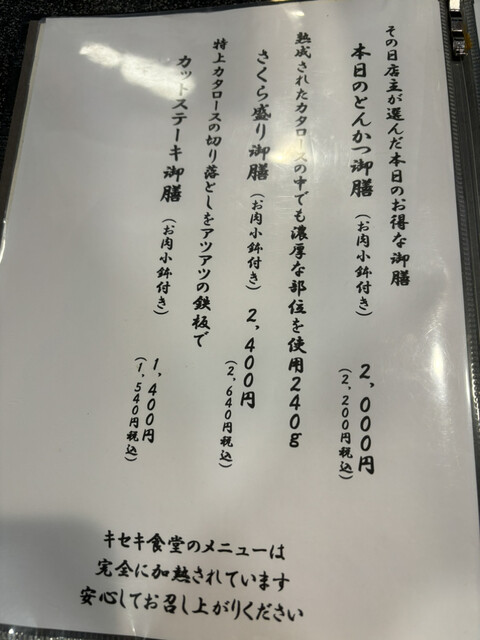 その日店主が選んだ本日のお得な御膳
本日のとんかつ御膳（お肉小鉢付き） 2,000円
（2,200円税込）
熟成されたカタロースの中でも濃厚な部位を使用240g
さくら盛り御膳（お肉小鉢付き） 2,400円
（2,640円税込）
特上カタロースの切り落としをアツアツの鉄板で
カットステーキ御膳（お肉小鉢付き） 1,400円
（1,540円税込）
キセキ食堂のメニューは
完全に加熱されています
安心してお召し上がりください